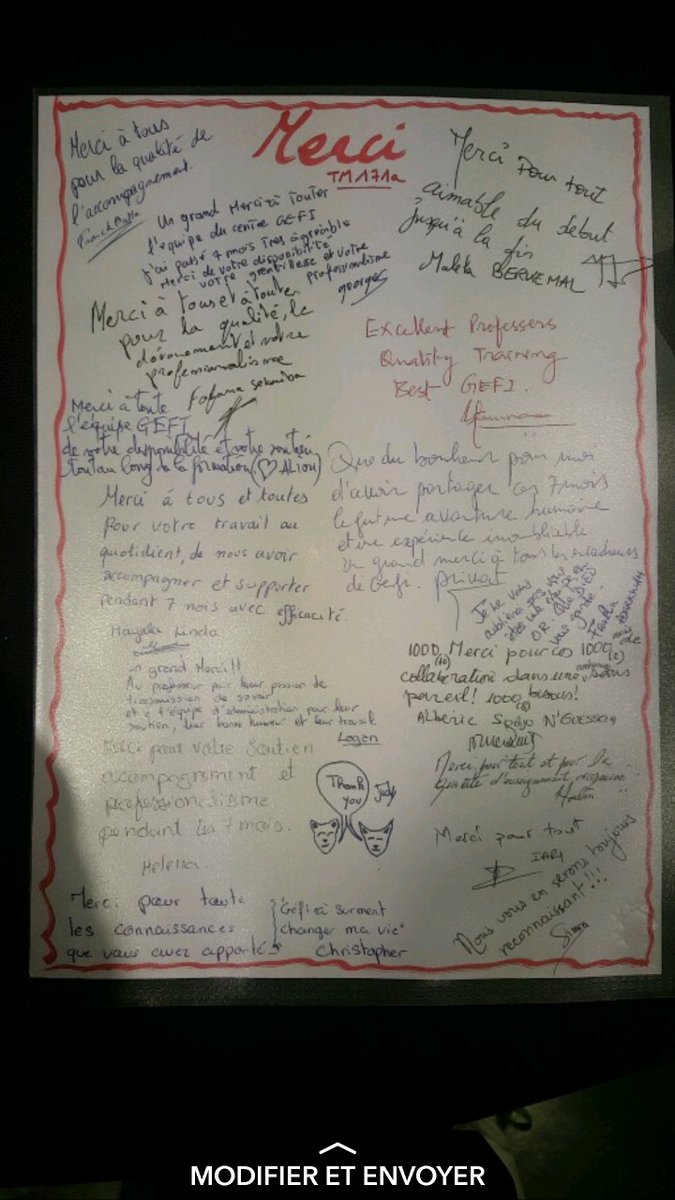 Merci
TM171a
Merci à tous
pour la qualité de
l'accompagnement.
Un grand Merci à toutes
l'équipe du centre GEFI
j'ai passé 7 mois très agréable
Merci de votre disponibilité
votre gentillesse et votre
professionalisme
georges
Merci Pour tout
aimable du debut
jusqu'à la fin
Merci à tous et à toute
pour la qualité, le
dévouement et votre
professionnalisme
Fofana
Excellent Professers
Quality Training
Best GEFI.
Merci à toute
l'équipe GEFI
de votre disponibilité et votre soutien
tout au long de la formation (♡ ALIOU)
Que du bonheur pour moi
d'avoir partager ces 7 mois
le fut une aventure humaine
et une expérience inoubliable
un grand merci à tous les
de Gefi.
Merci à tous et toutes
Pour votre travail au
quotidient, de nous avoir
accompagner et supporter
Pendant 7 mois avec efficacité.
Linda
Je ne vous
oubliera pas vous
êtes une équipe en
OR
vous garde
un grand Merci!!
Au professeur pour leur passion de
transmission de savoir
et à l'équipe d'administration pour leur
soutien, leur bonne humeur et leur travail
Logan
1000 Merci pour ces 1000 de
collaboration dans une sans
pareil! 1000 bisous!
ALBÉRIC N'GUESSAN
Merci pour votre Soutien
accompagnement et
professionalisme
pendant les 7 mois.
Helena
Thank
you
Judy
Merci pour tout et pour la
qualité d'enseignement
Merci pour tout
Nous vous en serons toujours
reconnaissant!!!
Merci pour toute
les connaissances
que vous avez apportés
"Gefi à surment
changer ma vie"
Christopher
MODIFIER ET ENVOYER